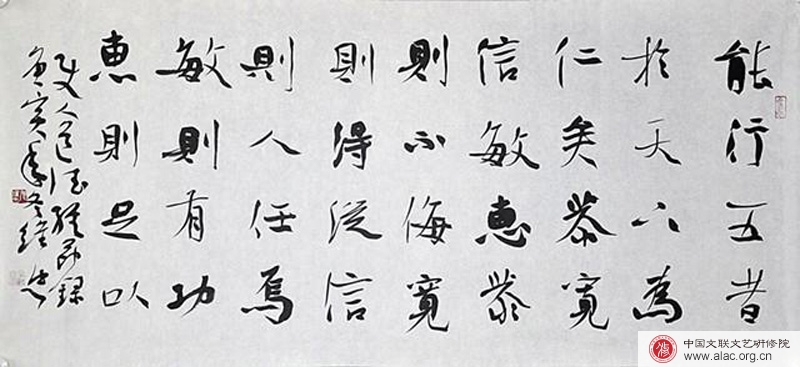 能行五者
於天下為
仁矣恭寬
信敏惠恭
則不侮寬
則得從信
則人任焉
敏則有功
惠則足以
使人 錄
庚寅年冬
中国文联文艺研修院
www.alac.org.cn